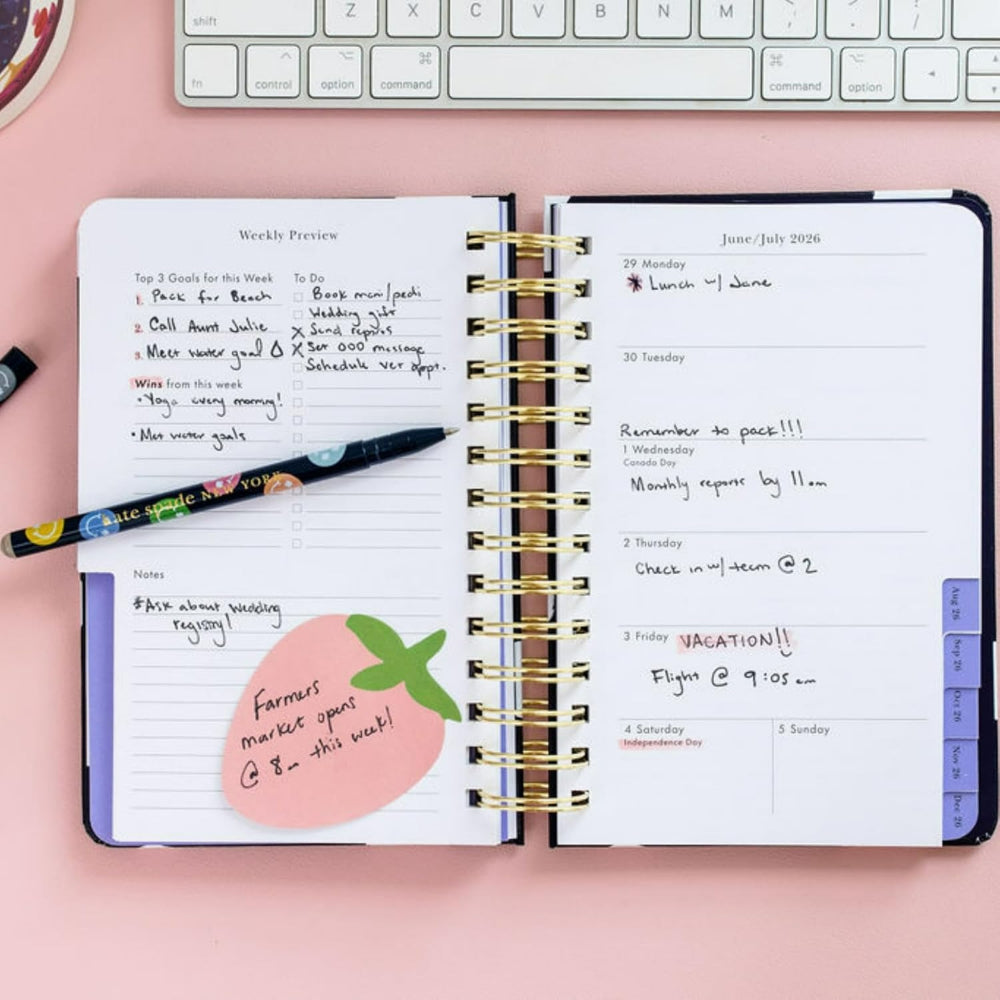 shift
Z
X
C
V
B
N
M
fn
control
option
command
command
option
Weekly Preview
Top 3 Goals for this Week
1. Pack for Beach
2. Call Aunt Julie
3. Meet water goal
Wins from this week
• Yoga every morning!
• Met water goals
To Do
Book mani/pedi
Wedding gift
X Send repros
X Set OOO message
Schedule vet appt.
kate spade NEW YORK
Notes
*Ask about wedding
registry!
Farmers
market opens
@ 8am this week!
June/July 2026
29 Monday
* Lunch w/ Jane
30 Tuesday
Remember to pack!!!
1 Wednesday
Canada Day
Monthly reports by 11am
2 Thursday
Check in w/ team @ 2
3 Friday VACATION!!
Flight @ 9:05 am
4 Saturday
Independence Day
5 Sunday
Aug 26
Sep 26
Oct 26
Nov 26
Dec 26